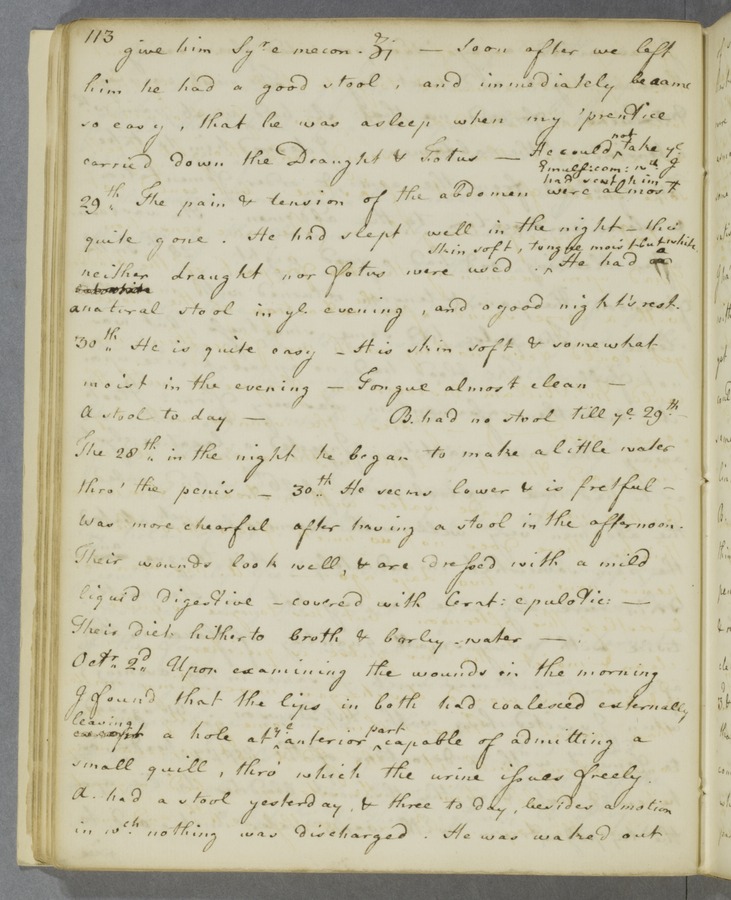 113
give him Syr. e mecon. ℥j — Soon after we left
him he had a good stool, and immediately became
so easy, that he was asleep when my 'prentice
carried down the Draught & Fotus — He could not take ye
Emuls: com: wch I
had sent him
29th The pain & tension of the abdomen were almost
quite gone. He had slept well in the night – tho'
skin soft, tongue moist but white
neither draught nor fotus were used. He had a
a natural stool in ye evening, and a good night's rest.
30th He is quite easy – His skin soft & somewhat
moist in the evening — Tongue almost clean —
A stool to day — B. had no stool till ye 29th
The 28th in the night he began to make a little water
thro' the penis — 30th He seems lower & is fretful –
was more chearful after having a stool in the afternoon.
Their wounds look well, & are dressed with a mild
liquid digestive – covered with Cerat: epulotic: —
Their diet hitherto broth & barley-water —.
Octr. 2d Upon examining the wounds in the morning
I found that the lips in both had coalesced externally
leaving
except a hole at ye anterior part capable of admitting a
small quill, thro' which the urine issues freely.
A. had a stool yesterday, & three to day, besides a motion
in wch nothing was discharged. He was waked out